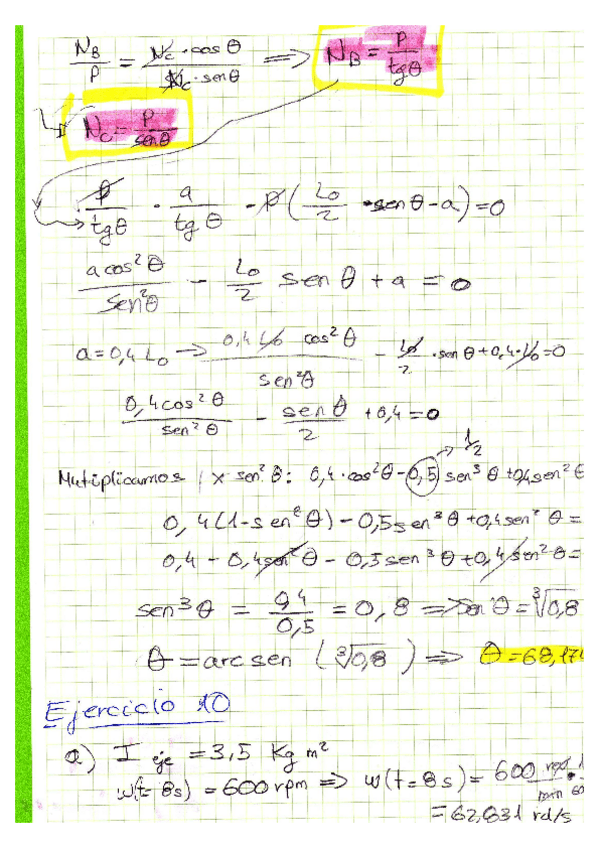 N_B/P = N_C·cos θ/N_C·sen θ => N_B = P/tgθ
N_C = P/senθ
P/tgθ · a/tgθ - P(L_0/2 · sen θ - a) = 0
a cos²θ/sen²θ - L_0/2 sen θ + a = 0
a = 0,4 L_0 → 0,4 L_0 cos²θ/sen²θ - L_0/2 · sen θ + 0,4·L_0 = 0
0,4 cos²θ/sen²θ - sen θ/2 + 0,4 = 0
1/2
Mutiplicamos x sen²θ: 0,4·cos²θ - 0,5 sen³θ + 0,4 sen²θ
0,4(1-sen²θ) - 0,5 sen³θ + 0,4 sen²θ =
0,4 - 0,4 sen²θ - 0,5 sen³θ + 0,4 sen²θ =
sen³θ = 0,4/0,5 = 0,8 => sen θ = ∛0,8
θ = arcsen (∛0,8) => θ = 68,174
Ejercicio 10
a) I eje = 3,5 Kg m²
w(t=8s) = 600 rpm => w(t=8s) = 600 rpm/min ·
= 62,831 rd/s